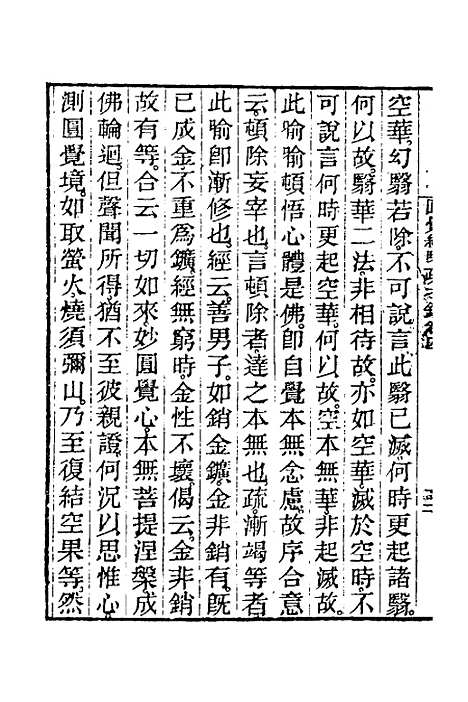 空華。幻翳若除。不可說言此翳已滅。何時更起諸翳。
何以故。翳華二法。非相待故。亦如空華。滅於空時。不
可說言何時更起空華。何以故。空本無華。非起滅故。
此喻喻頓悟心體是佛。即自覺本無念慮。故序合意
云。頓除妄宰也。言頓除者。達之本無也。疏。漸竭等者
此喻即漸修也。經云。善男子。如銷金鑛。金非銷有。既
已成金。不重為鑛。經無窮時。金性不壞。偈云。金非銷
故有等。合云一切如來妙圓覺心。本無菩提涅槃。成
佛輪迴。但聲聞所得。猶不至彼親證。何況以思惟心
測圓覺境。如取螢火燒須彌山。乃至復結空果等。然